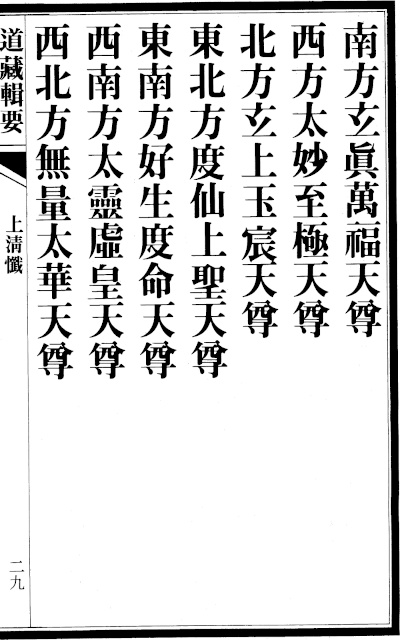 南方玄眞萬福天尊
西方太妙至極天尊
北方玄上玉宸天尊
東北方度仙上聖天尊
東南方好生度命天尊
西南方太靈虛皇天尊
西北方無量太華天尊
道藏輯要
上清懺
二九